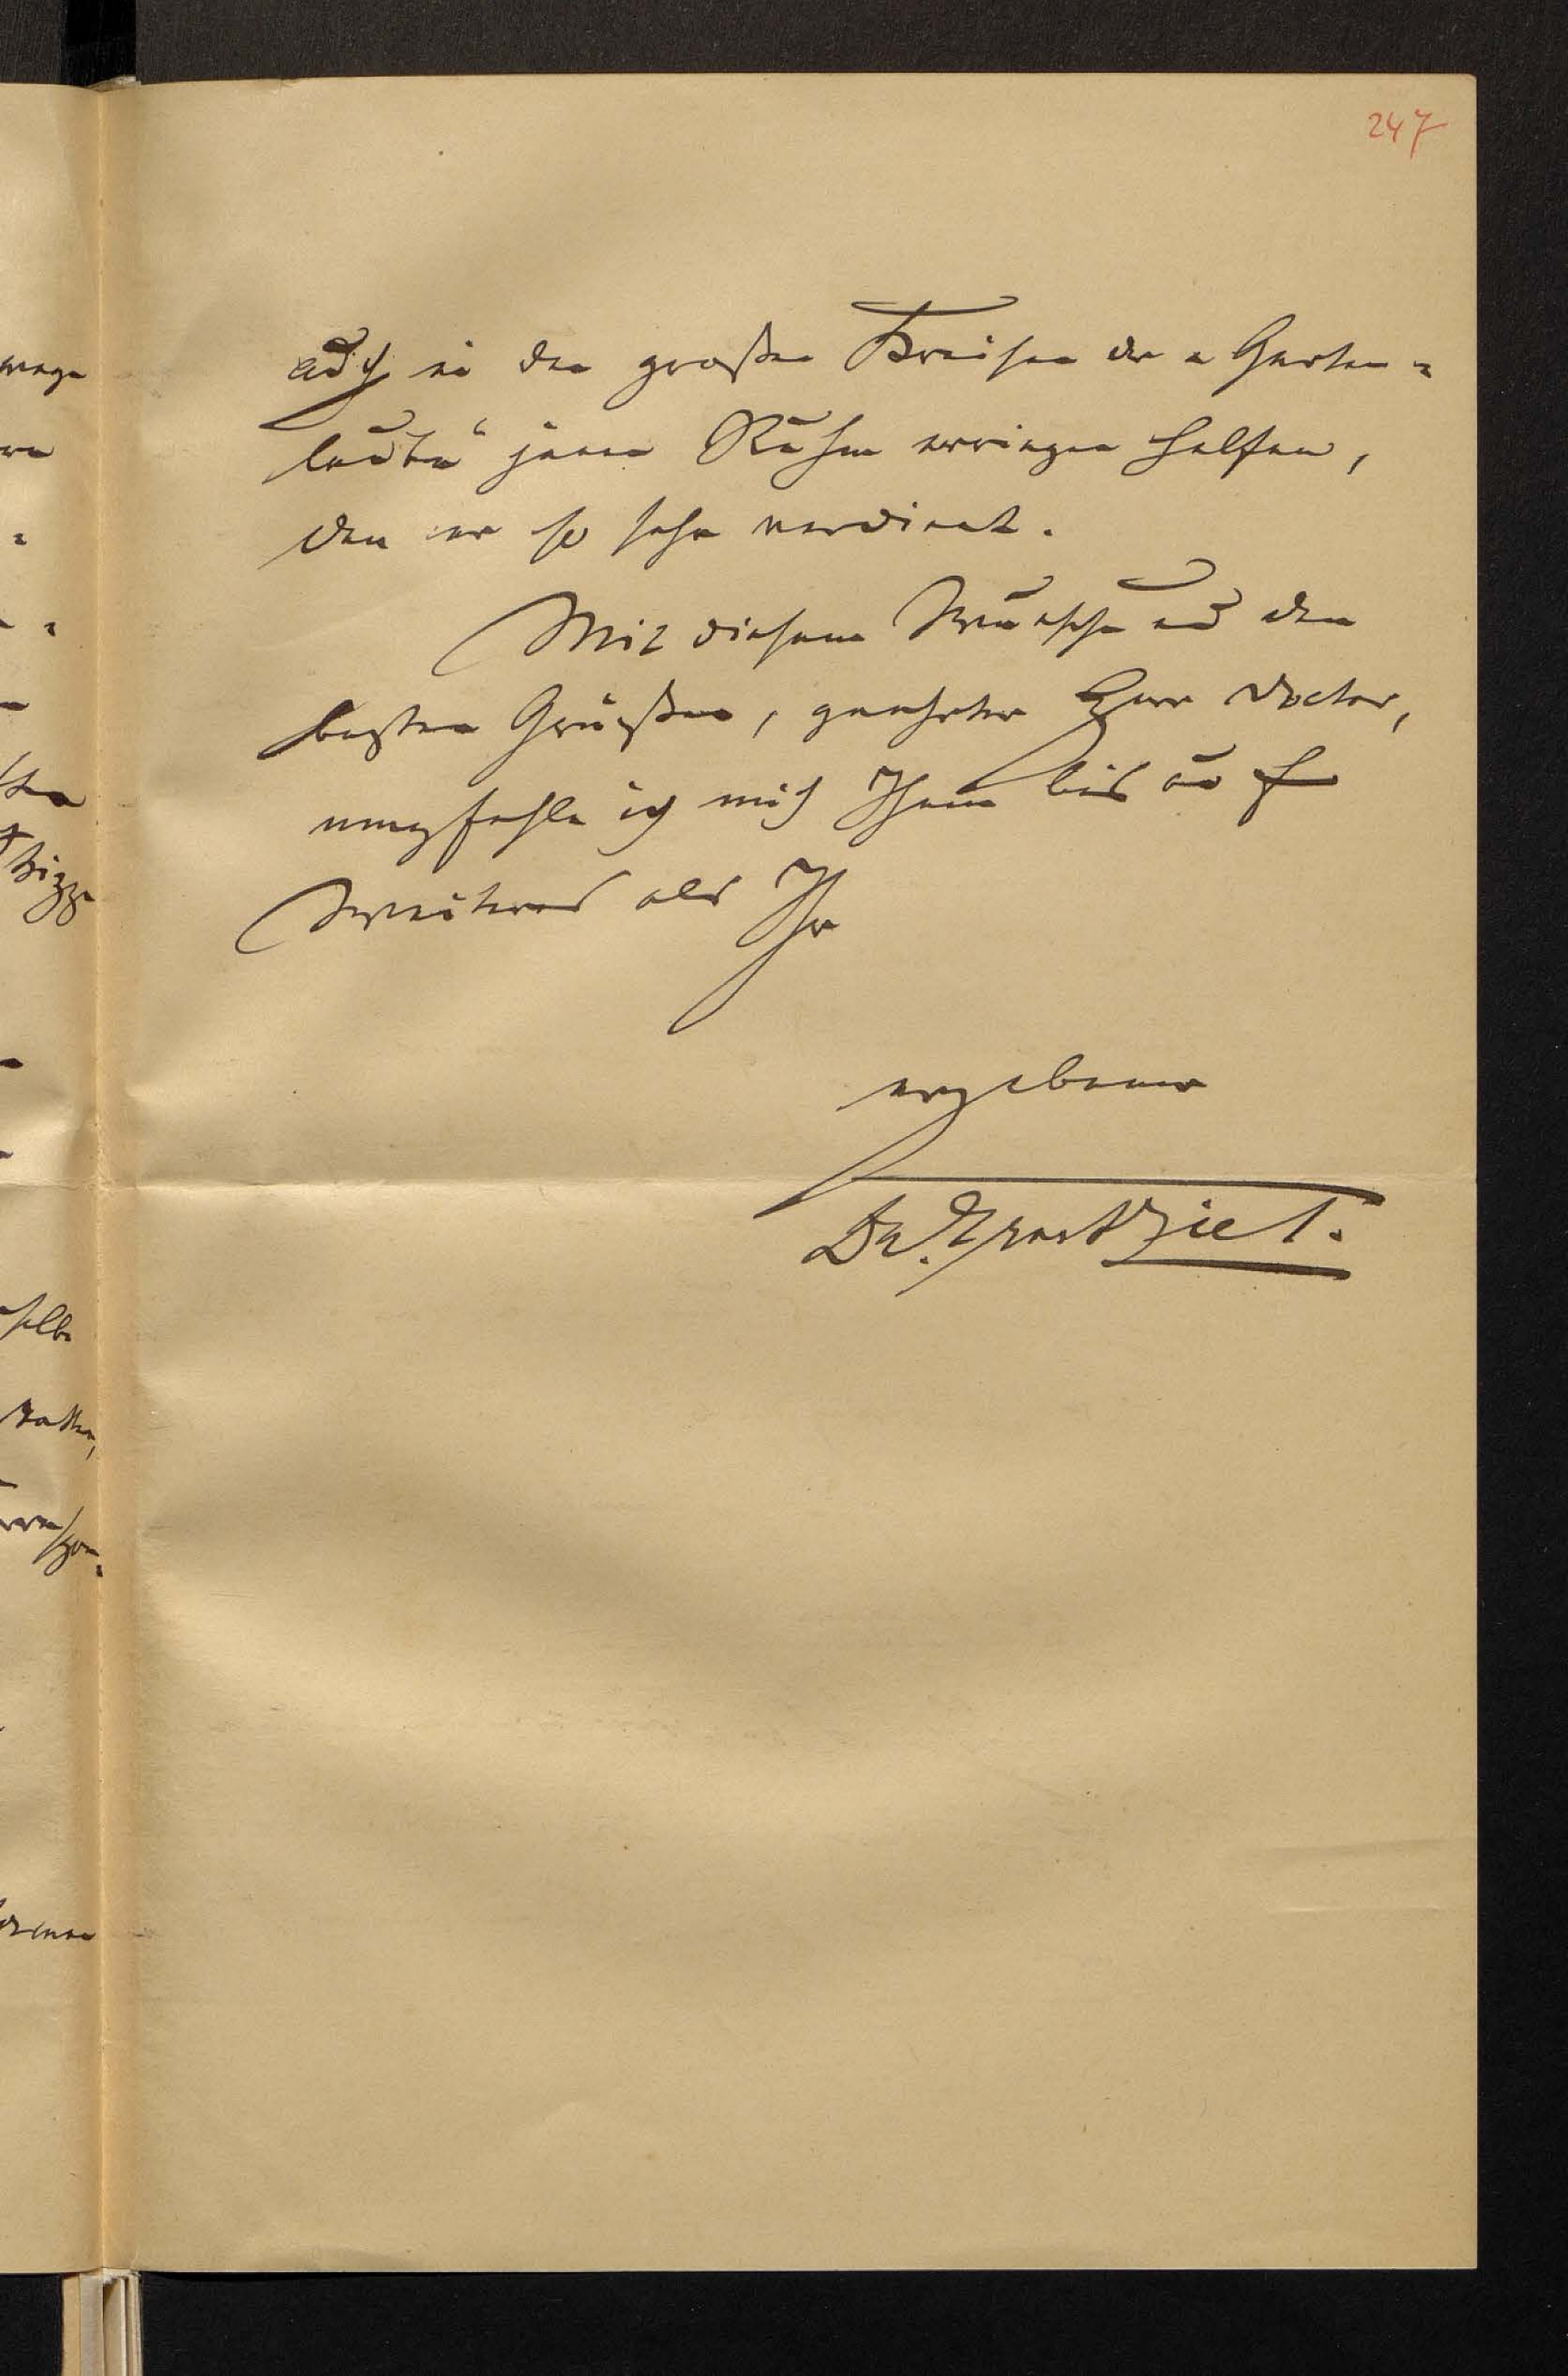 247
auch in den großen Kreisen der „Garten=
laube“ jenen Ruhm erringen helfen,
den er so sehr verdient.
Mit diesem Wunsche und den
besten Grüßen, geehrter Herr Doctor,
empfehle ich mich Ihnen bis auf
Weiteres als Ihr
ergebener
Dr. Ernst Ziel.